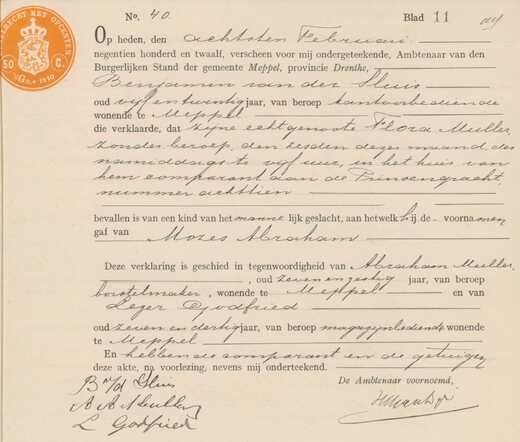 No. 40. Blad 11
Op heden, den achtsten Februari
negentien honderd en twaalf, verscheen voor mij ondergeteekende, Ambtenaar van den
Burgerlijken Stand der gemeente Meppel, provincie Drenthe,
Benjamin van der Sluis
oud vijf en twintig jaar, van beroep kantoorbediende
wonende te Meppel
die verklaarde, dat zijne echtgenoote Flora Muller,
zonder beroep, den zesden dezer maand, des
namiddags te vijf uur, in het huis van
hem comparant aan de Prinsengracht,
nummer achttien
bevallen is van een kind van het mannelijk geslacht, aan hetwelk hij de voornamen
gaf van Mozes Abraham
Deze verklaring is geschied in tegenwoordigheid van Abraham Muller
, oud zeven en zestig jaar, van beroep
borstelmaker, wonende te Meppel en van
Lezer Godfried
oud zeven en dertig jaar, van beroep magazijnbediende wonende
te Meppel
En hebben de comparant en de getuigen
deze akte, na voorlezing, nevens mij onderteekend.
De Ambtenaar voornoemd,
B v/d Sluis
A A Muller
L Godfried
50 C.